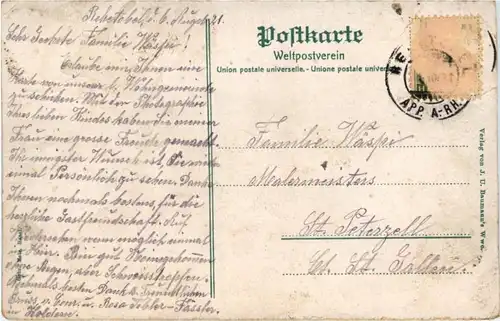 Rehetobel, d. 6. August 21.
Sehr Geehrte Familie Wäspi!
Erlaube mir, Ihnen eine
Karte von unserer Wohngemeinde
zu schicken. Mit der Photografie
Ihres lieben Kindes haben Sie meiner
Frau eine grosse Freude gemacht.
Ihr innigster Wunsch ist, Sie
einmal Persönlich zu sehen. Danke
Ihnen nochmals bestens, für die
herzliche Gastfreundschaft. Auf
Wiedersehen wenn möglich einmal
Hier. Bin gut Heimgekommen
Regen, aber Schweisstropfen.
Nochmals besten Dank & Freundlichen
Gruss, v. u. Rosa Tobler-Fässler.
Postkarte
Weltpostverein
Union postale universelle. - Unione postale
APP. A.-RH.
Familie Wäspi
Malermeisters
St. Peterzell
Ct. St. Gallen.
Verlag von J. U. Baumann's Wwe.